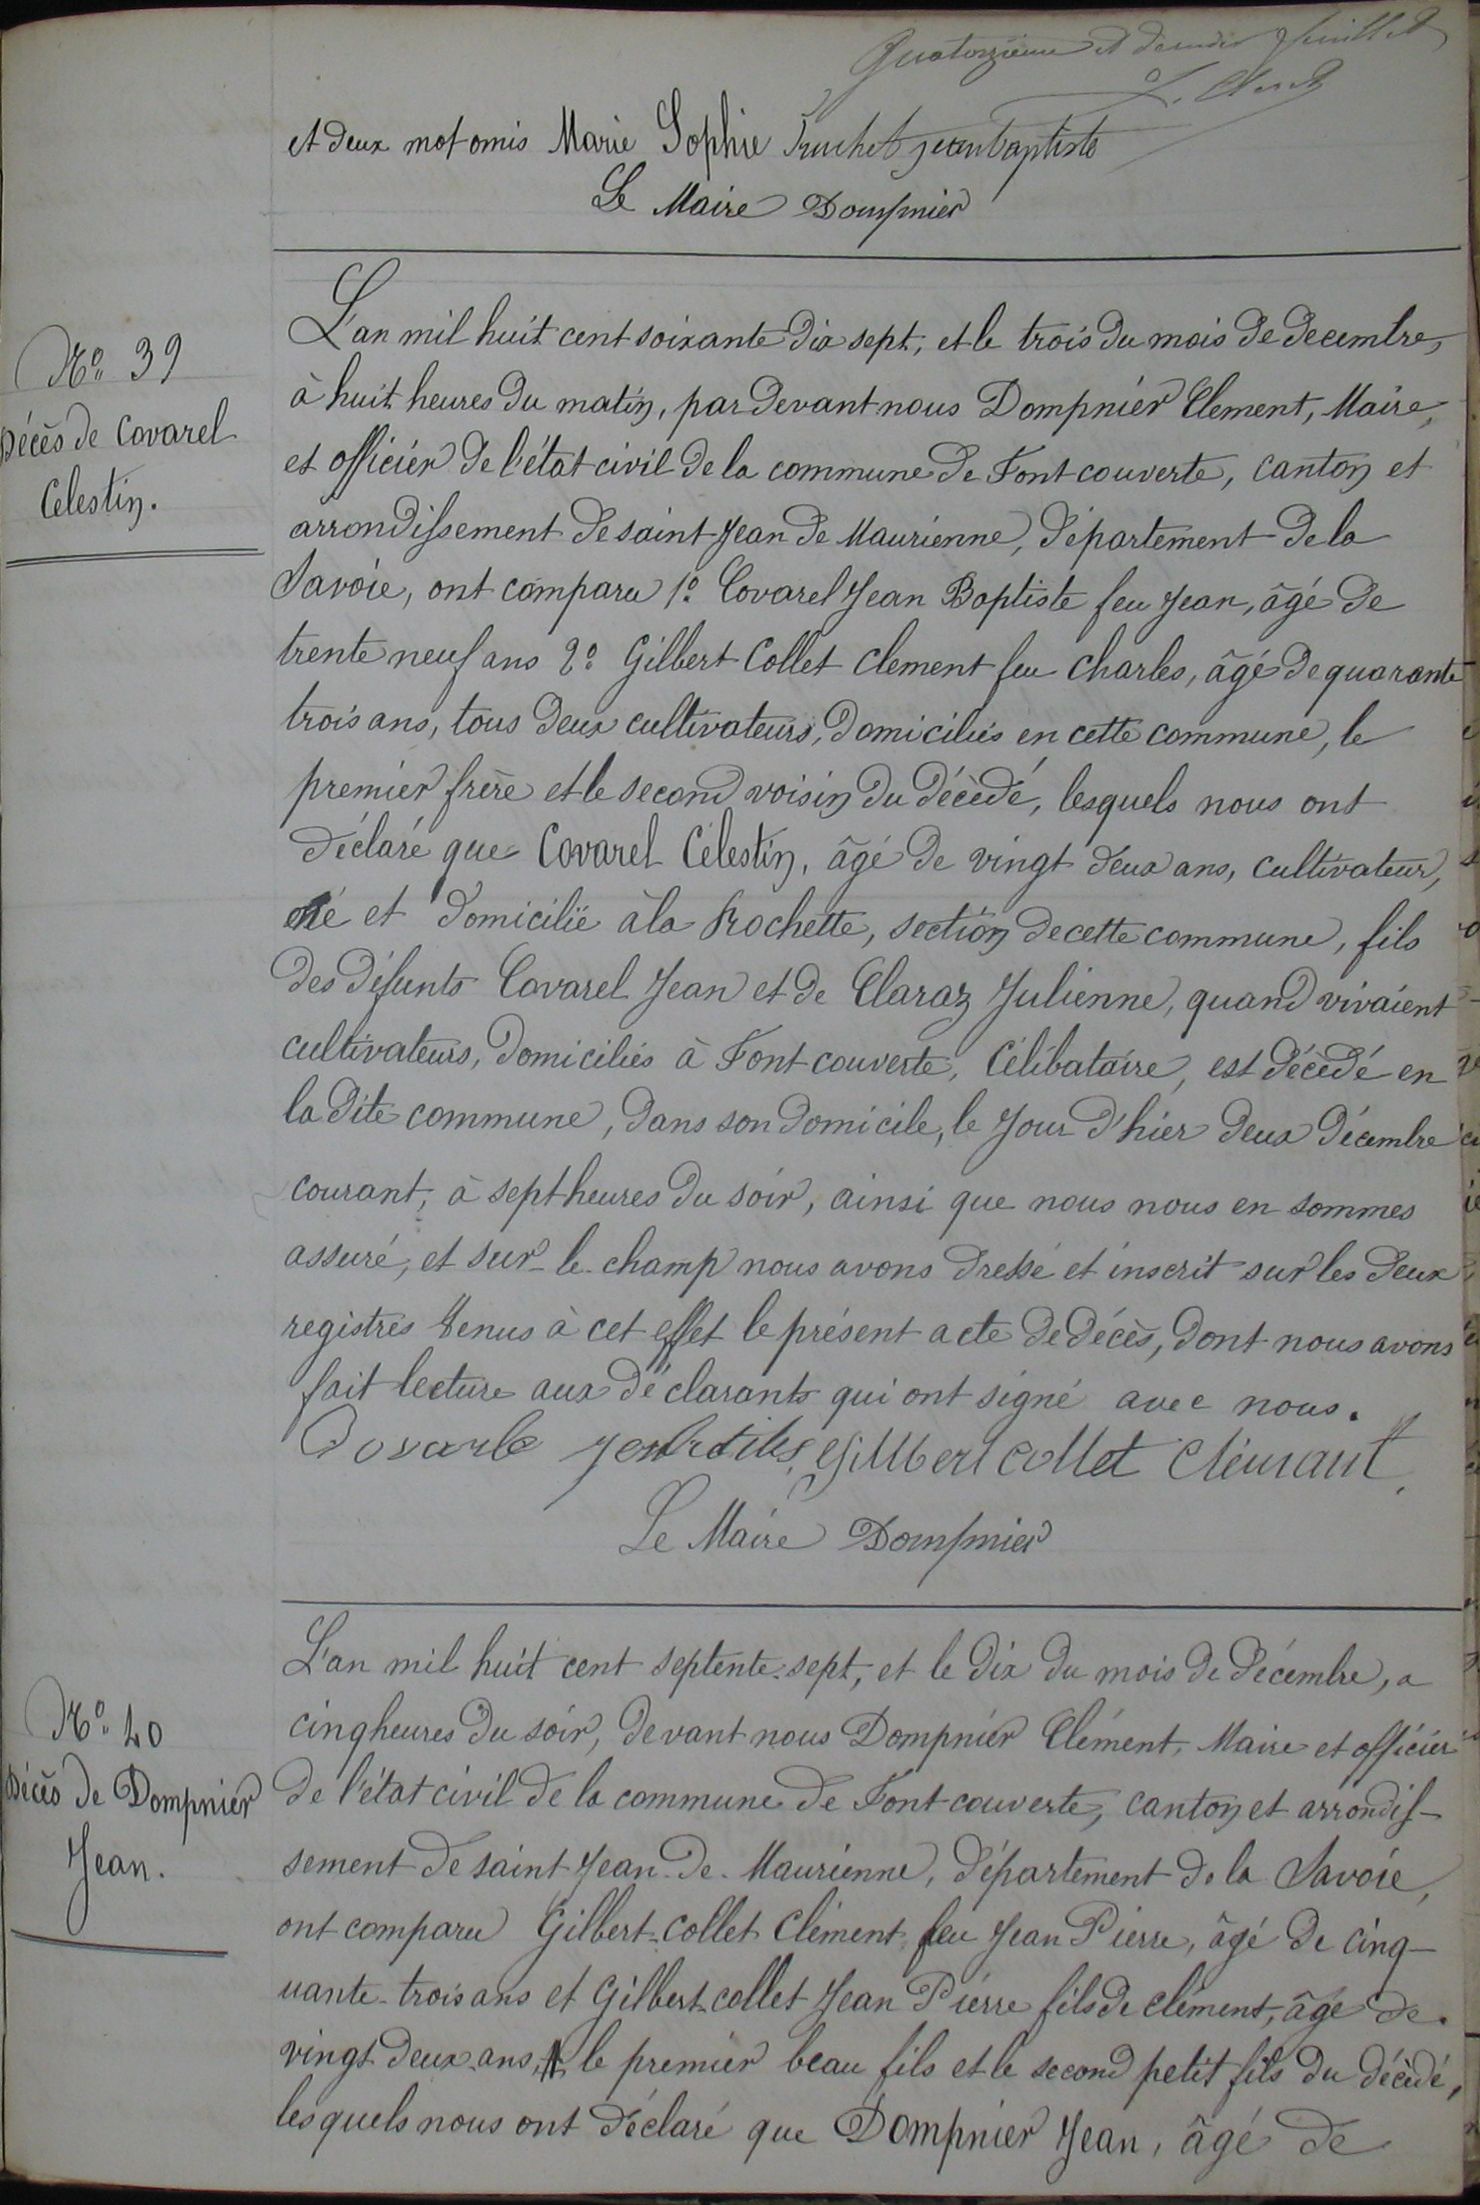 Quatorzième et dernier feuillet
et deux mot omis Marie Sophie Truchet jean baptiste
Le Maire Dompnier
L'an mil huit cent soixante dix sept, et le trois du mois de decembre,
No 39
à huit heures du matin, par devant nous Dompnier Clement, Maire,
Décès de Covarel
et officier de l'état civil de la commune de Font couverte, canton et
Celestin.
arrondissement de saint Jean de Maurienne, département de la
Savoie, ont comparu 1o Covarel Jean Baptiste feu Jean, âgé de
trente neuf ans 2o Gilbert Collet Clement feu Charles, âgé de quarante
trois ans, tous deux cultivateurs, domiciliés en cette commune, le
premier frère et le second voisin du décèdé, lesquels nous ont
déclaré que Covarel Célestin, âgé de vingt deux ans, cultivateur,
né et domicilié à la Rochette, section de cette commune, fils
des défunts Covarel Jean et de Claraz Julienne, quand vivaient
cultivateurs, domiciliés à Font couverte, Célibataire, est décèdé en
la dite commune, dans son domicile, le jour d'hier deux décembre
courant, à sept heures du soir, ainsi que nous nous en sommes
assuré, et sur-le-champ nous avons dressé et inscrit sur les deux
registres tenus à cet effet le présent acte de décès, dont nous avons
fait lecture aux déclarants qui ont signé avec nous.
gillbert collet
Le Maire Dompnier
L'an mil huit cent septente-sept, et le dix du mois de décembre, a
No 40
cinq heures du soir, devant nous Dompnier Clément, Maire et officier
Décès de Dompnier
de l'état civil de la commune de Font couverte, canton et arrondis-
Jean.
sement de saint Jean-de-Maurienne, département de la Savoie,
ont comparu Gilbert-Collet Clément feu Jean Pierre, âgé de cinq-
uante-trois ans et Gilbert-collet Jean Pierre fils de clément, âgé de
vingt deux ans, le premier beau fils et le second petit fils du décèdé,
lesquels nous ont déclaré que Dompnier Jean, âgé de